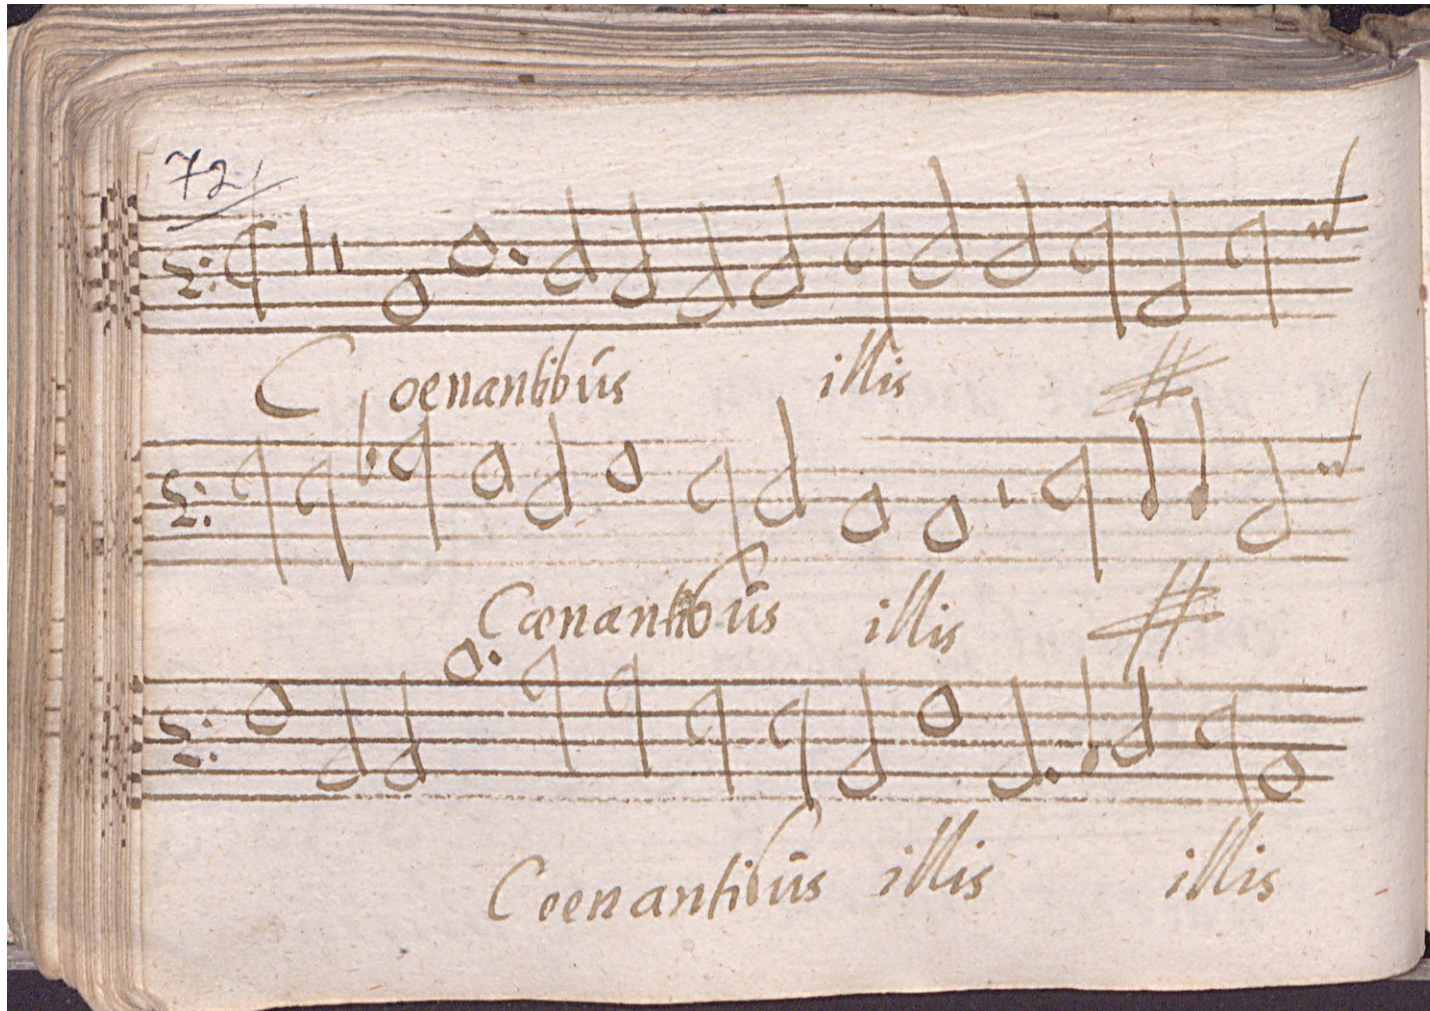 72
Coenantibūs illis
Cœnantibūs illis
Coenantibūs illis illis